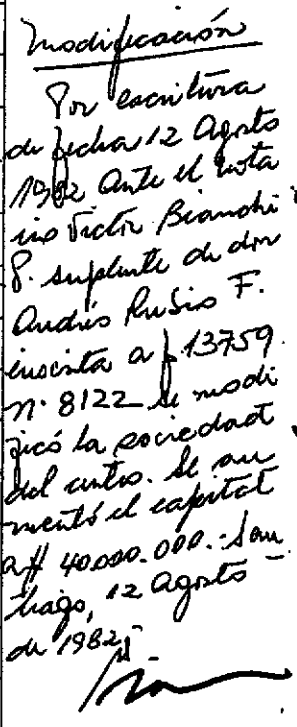 Modificación
Por escritura
de fecha 12 Agosto
1982 Ante el nota
rio Victor Bianchi
P. suplente de don
Andrés Rubio F.
inscrita a f 13759.
n. 8122 se modi
ficó la sociedad
del centro. Se au
mentó el capital
a $ 40.000.000.- San
tiago, 12 Agosto
de 1982